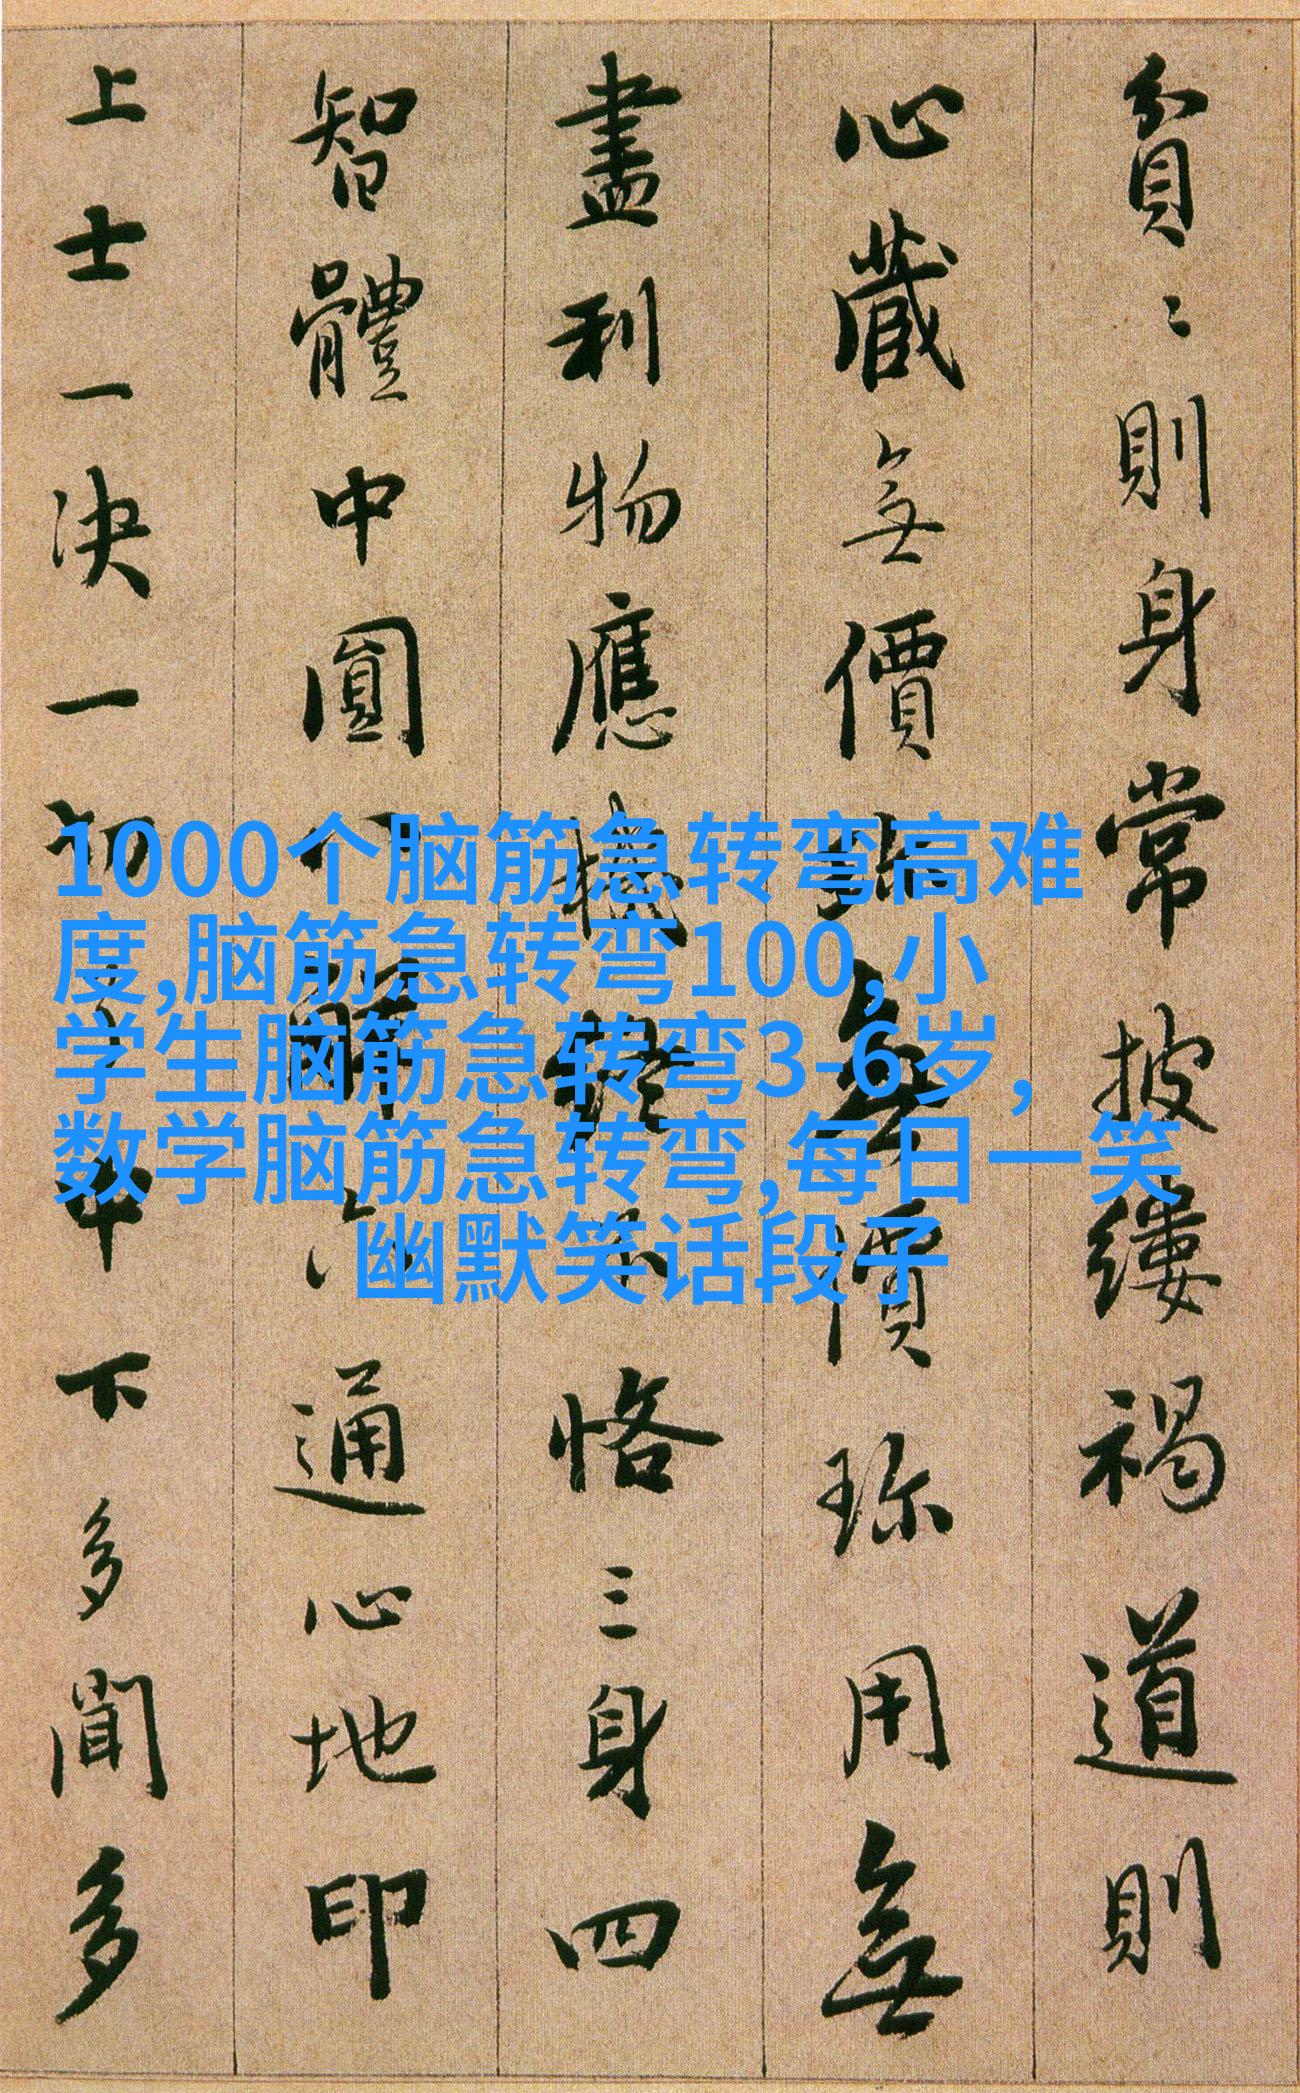 貧〻則身常披縷褐道則
心藏無價珎無價珎用無
盡利物應機終不恪三身四
智體中圓八解六通心地印
上士一決一切了中下多聞多
1000个脑筋急转弯高难
度,脑筋急转弯100,小
学生脑筋急转弯3-6岁,
数学脑筋急转弯,每日一笑
幽默笑话段子